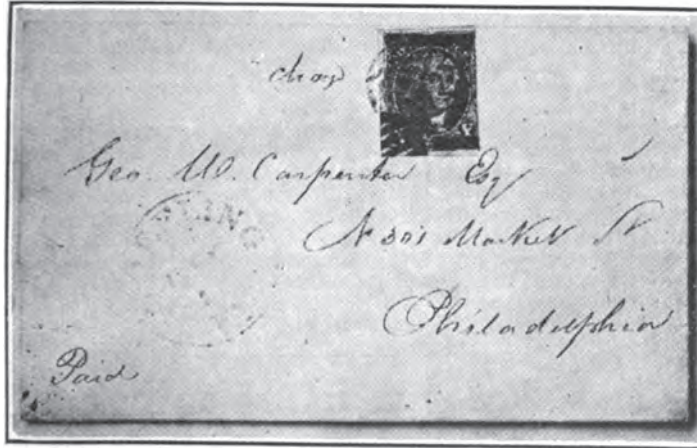 chg
Geo. W. Carpenter Esq
No 301 Market St
Philadelphia
Paid